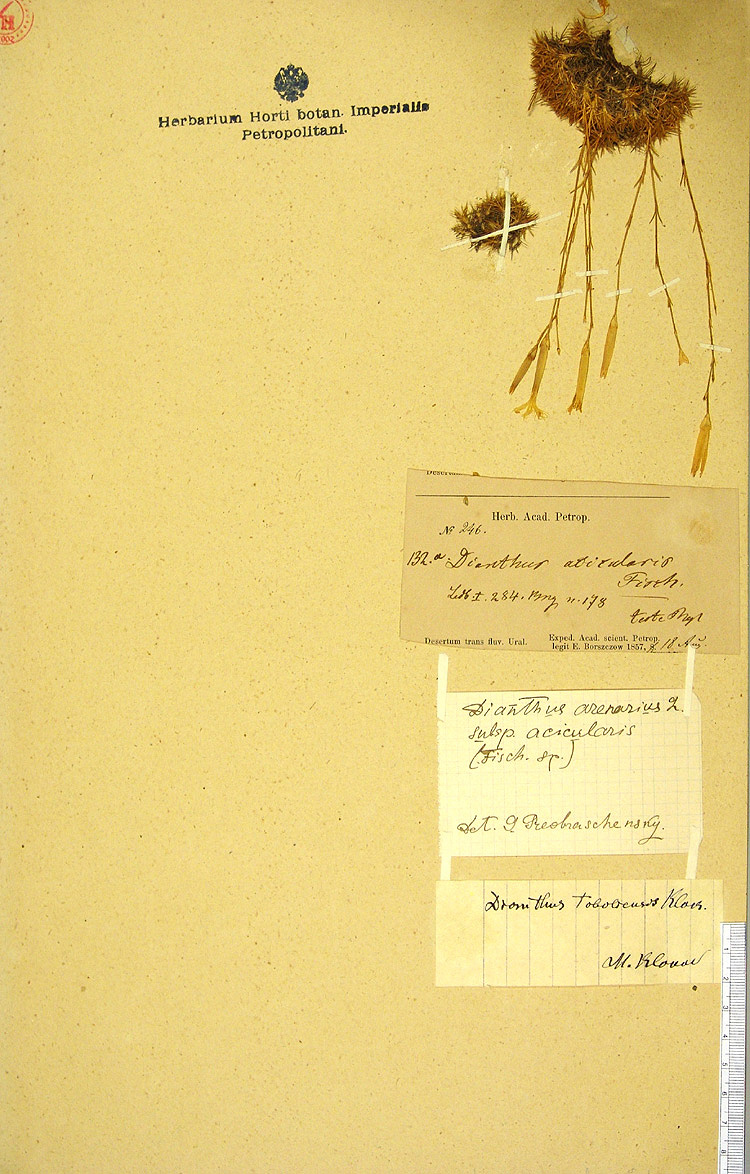 Herbarium Horti botan. Imperialis
Petropolitani.
Herb. Acad. Petrop.
№ 246.
132.a. Dianthus acicularis
Fisch.
Ldb I. 284. n. 178
teste
Desertum trans fluv. Ural.
Exped. Acad. scient. Petrop.
legit E. Borszczow 1857, 18 Aug
Dianthus arenarius L.
subsp. acicularis
(Fisch. sp.)
Det. G Preobraschensky.
Dianthus tobolensis Klok.
M. Klokov
1
2
3
4
5
6
7
8